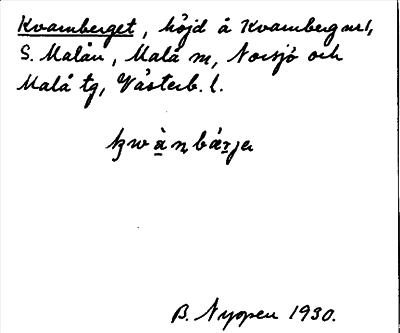 Kvarnberget, höjd å Kvarnbergnr1,
S. Malån, Malå sn, Norsjö och
Malå tg, Västerb. l.
B. Nyopen 1930.